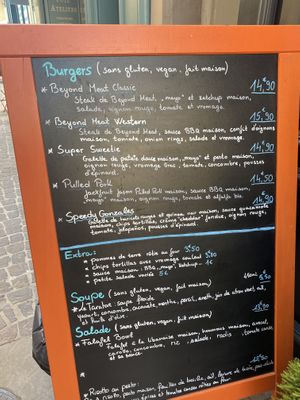 Burgers (sans gluten, vegan, fait maison)
* Beyond Meat Classic 14,90
Steak de Beyond Meat, "mayo" et ketchup maison,
salade, oignon rouge, tomate et vromage.
* Beyond Meat Western 15,90
Steak de Beyond Meat, sauce BBQ maison, confit d'oignons
maison, tomate, onion rings, salade et vromage.
* Super Sweetie 14,90
Galette de patate douce maison, "mayo" et pesto maison,
oignon rouge, vromage Grec, tomate, concombre, pousses
d'épinard.
* Pulled Pork 14,50
Jackfruit façon Pulled Pork maison, sauce BBQ maison,
"mayo" maison, oignon rouge, tomate et
* Speedy Gonzales 14,90
haricots rouges et quinoa maison,
maison, chips tortillas, crème cheddar oignon rouge,
tomate, jalapeños, pousses d'épinard.
Extra:
* pommes de terre rôties au four 3,50
* chips tortillas avec vromage coulant
* sauce maison: BBQ, mayo, ketchup 1€
* petite salade variée 5€
Soupe (sans gluten, vegan, fait maison)
Tarator: soupe froide
yaourt, concombre, aneth, ail,
et huile d'olive.
Salade (sans gluten, vegan, fait maison)
* Falafel Bowl
Falafel à la libanaise maison, houmous maison,
carotte, concombre, riz, salade, radis, tomate
et sa sauce
* Risotto au pesto: